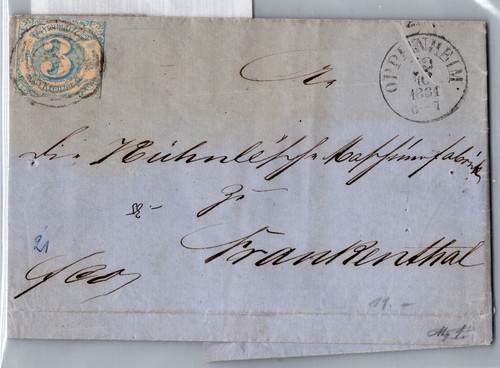 3
OPPENHEIM
2
10
1861
6-7
An
die Kühnle'sche Maschinenfabrik
zu
Frankenthal
21
fco
11.-